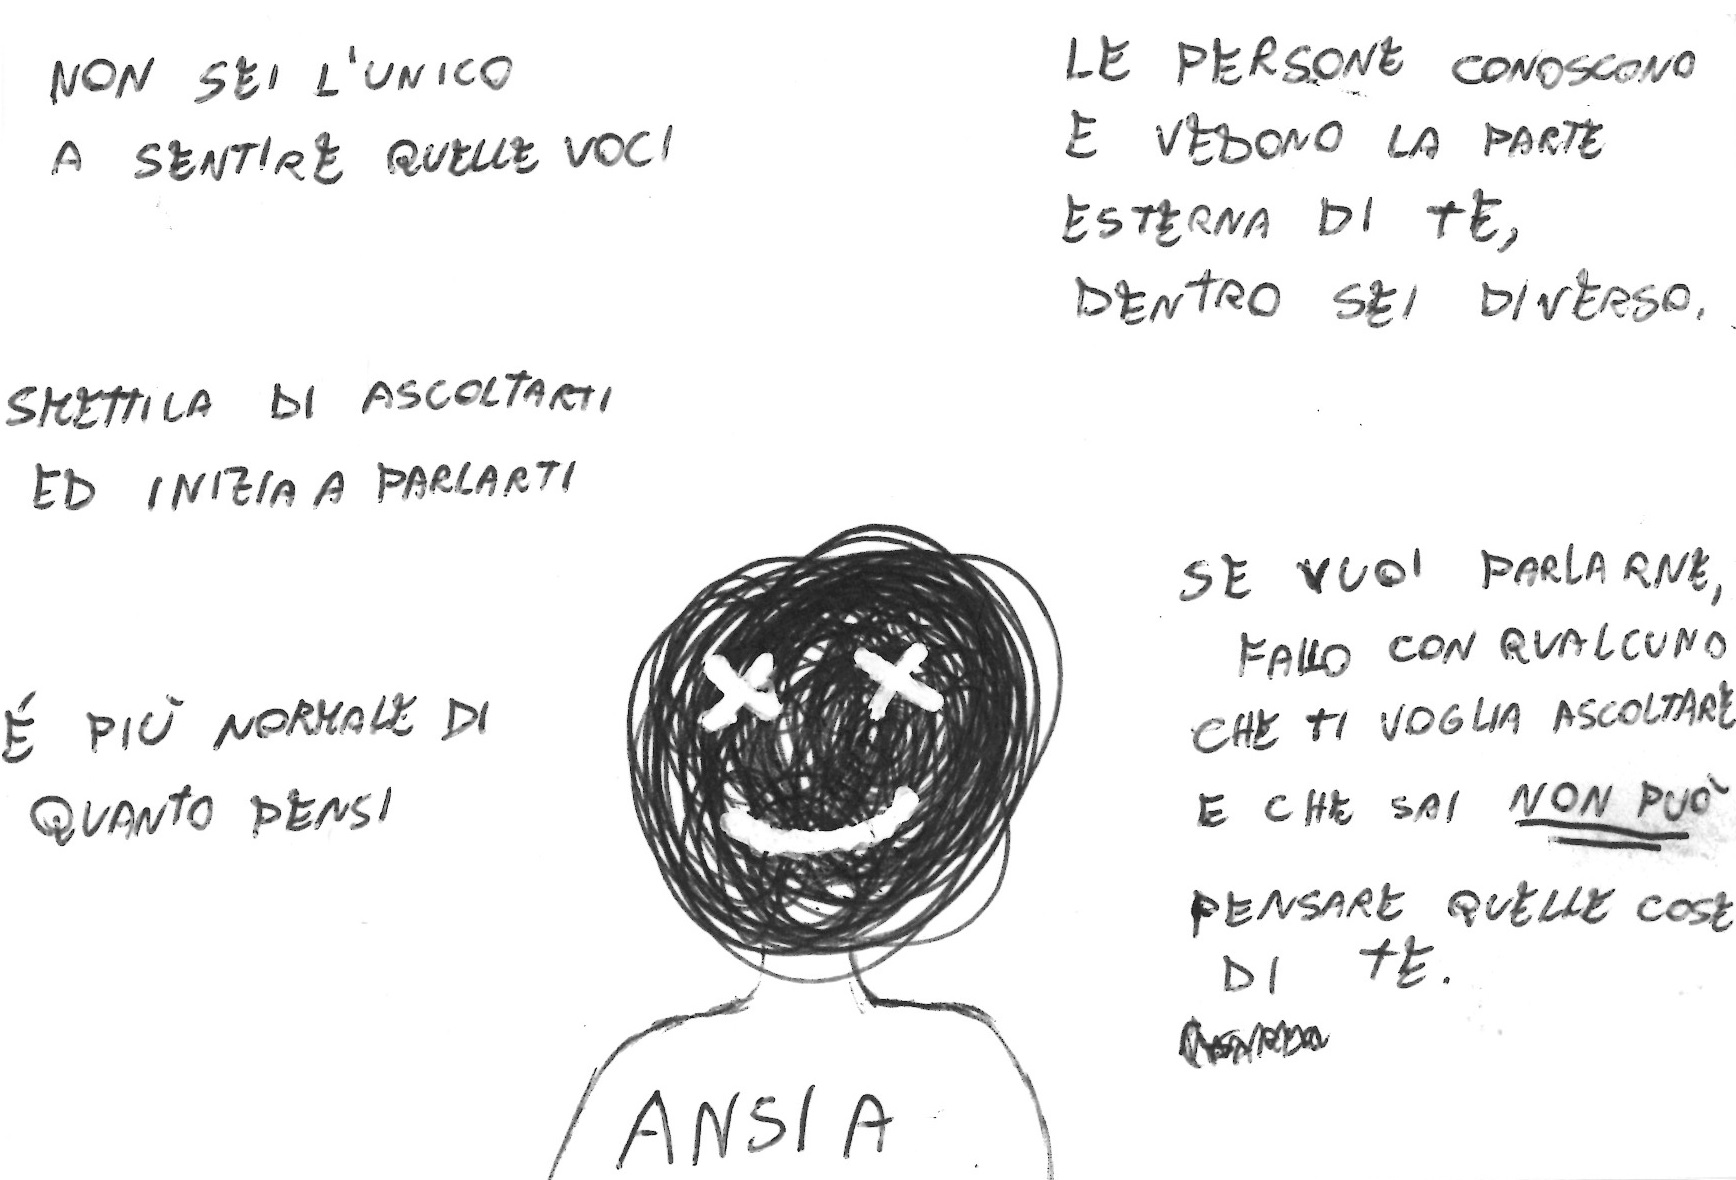 NON SEI L'UNICO
A SENTIRE QUELLE VOCI
LE PERSONE CONOSCONO
E VEDONO LA PARTE
ESTERNA DI TE,
DENTRO SEI DIVERSO.
SMETTILA DI ASCOLTARTI
ED INIZIA A PARLARTI
É PIÙ NORMALE DI
QUANTO PENSI
SE VUOI PARLARNE,
FALLO CON QUALCUNO
CHE TI VOGLIA ASCOLTARE
E CHE SAI NON PUÒ
PENSARE QUELLE COSE
DI TE.
ANSIA